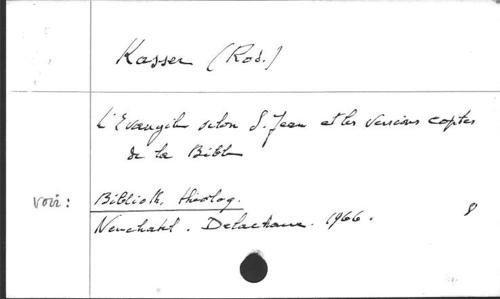 Kasser (Rod.)
L'Evangile selon S. Jean et les versions coptes
de la Bible
voir : Biblioth. théolog.
Neuchatel. Delachaux. 1966. 8